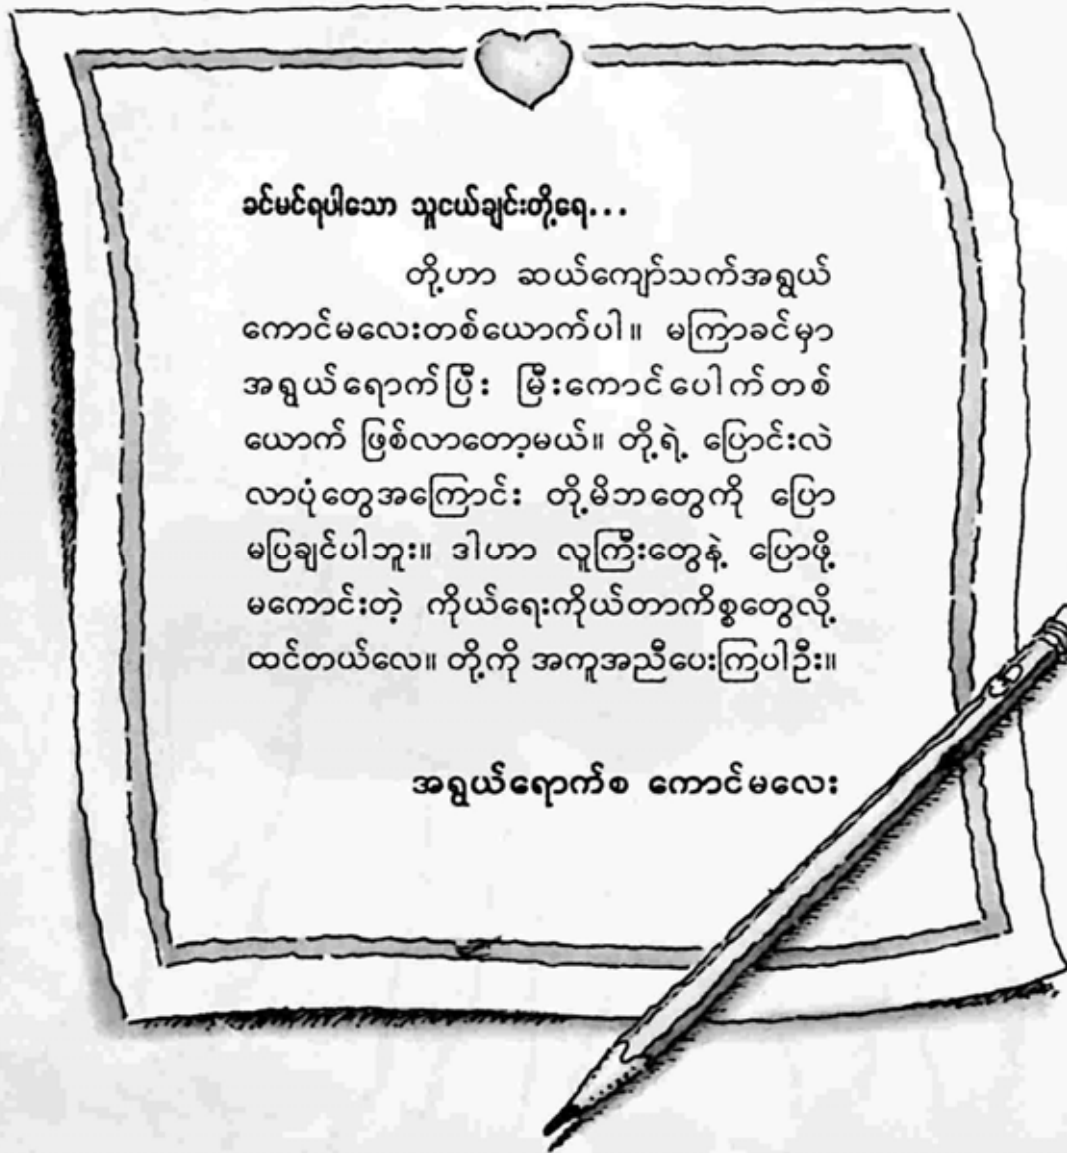 ခင်မင်ရပါသော သူငယ်ချင်းတို့ရေ...
တို့ဟာ ဆယ်ကျော်သက်အရွယ်
ကောင်မလေးတစ်ယောက်ပါ။ မကြာခင်မှာ
အရွယ်ရောက်ပြီး မြီးကောင်ပေါက်တစ်
ယောက် ဖြစ်လာတော့မယ်။ တို့ရဲ့ ပြောင်းလဲ
လာပုံတွေအကြောင်း တို့မိဘတွေကို ပြော
မပြချင်ပါဘူး။ ဒါဟာ လူကြီးတွေနဲ့ ပြောဖို့
မကောင်းတဲ့ ကိုယ်ရေးကိုယ်တာကိစ္စတွေလို့
ထင်တယ်လေ။ တို့ကို အကူအညီပေးကြပါဦး။
အရွယ်ရောက်စ ကောင်မလေး